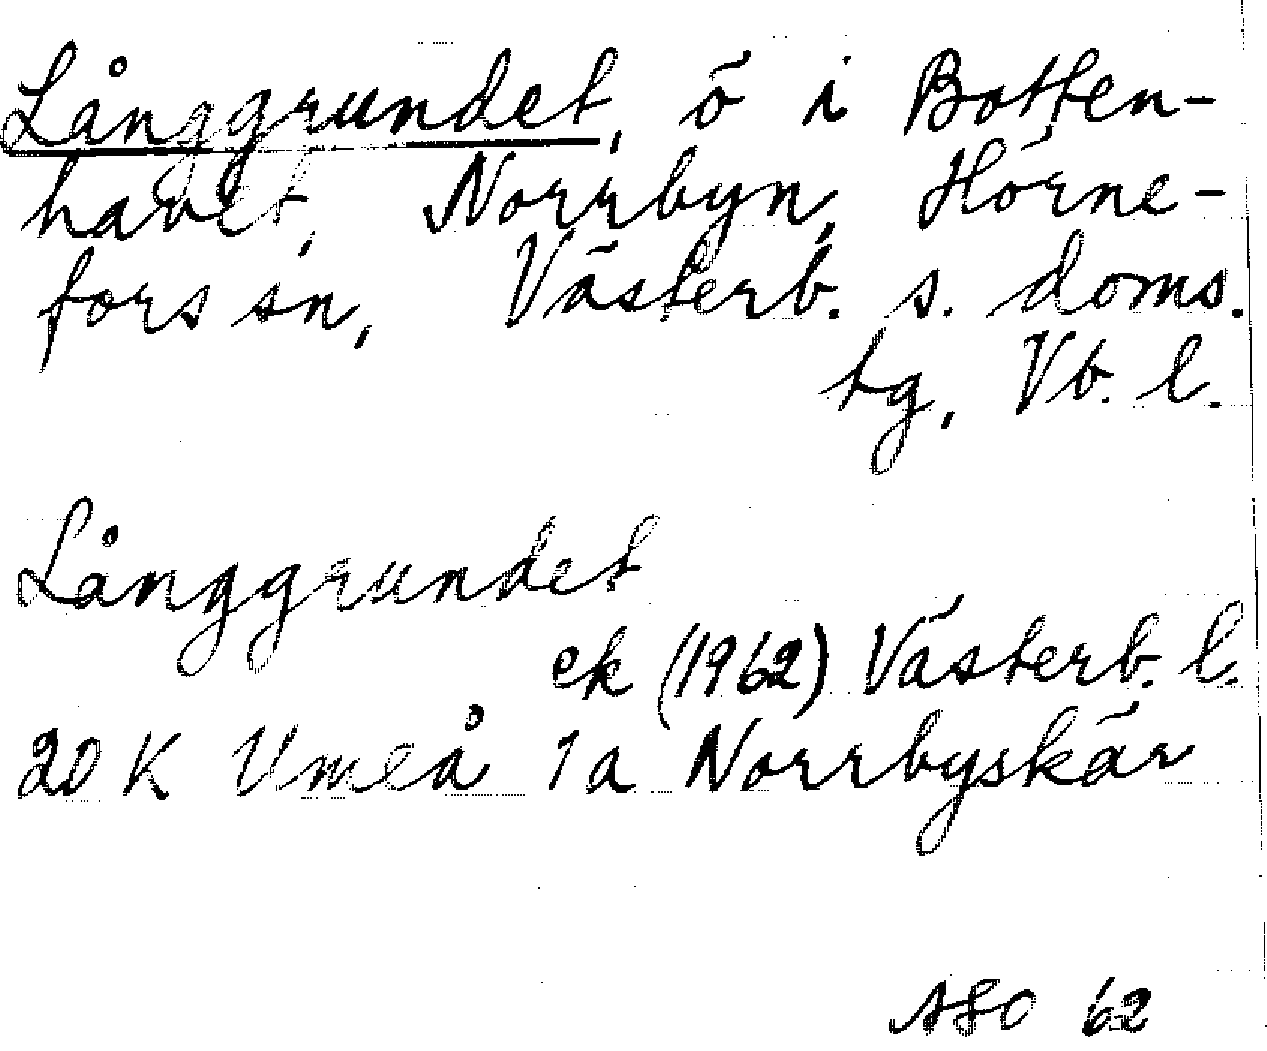 Långgrundet, ö i Botten-
havet, Norrbyn, Hörne-
fors sn, Västerb. s. doms.
tg, Vb. l.
Långgrundet
ek (1962) Västerb. l.
20 K Umeå 1a Norrbyskär
62